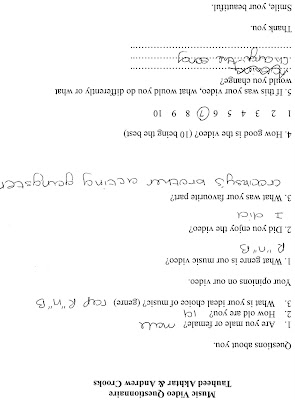 Music Video Questionnaire
Tauheed Akhtar & Andrew Crooks
Questions about you.
1. Are you male or female? male
2. How old are you? 19
3. What is your ideal choice of music? (genre) rap R"n"B
Your opinions on our video.
1. What genre is our music video?
R"n"B
2. Did you enjoy the video?
I did
3. What was your favourite part?
brother acting gangster
4. How good is the video? (10 being the best)
1 2 3 4 5 6 7 8 9 10
5. If this was your video, what would you do differently or what
would you change?
Change the song
Thank you.
Smile, your beautiful.